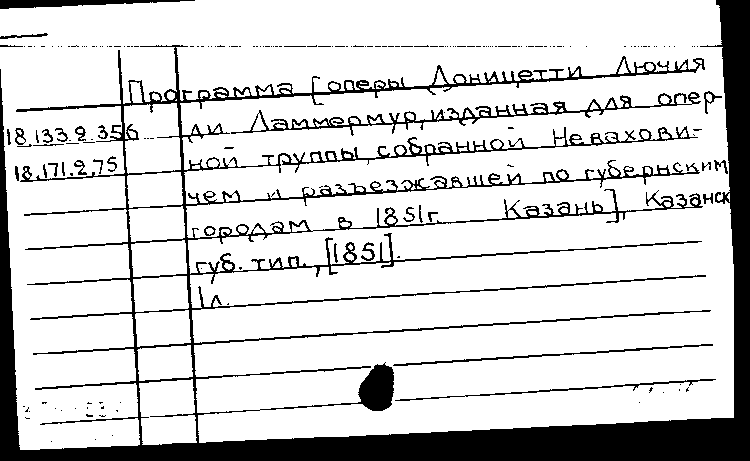 Программа [оперы Доницетти Лючия
18.133.2.356 ди Ламмермур, изданная для опер-
18.171.2.75 ной труппы, собранной Невахови-
чем и разъезжавшей по губернским
городам в 1851г. Казань], Казанск
губ. тип., [1851].
1л.